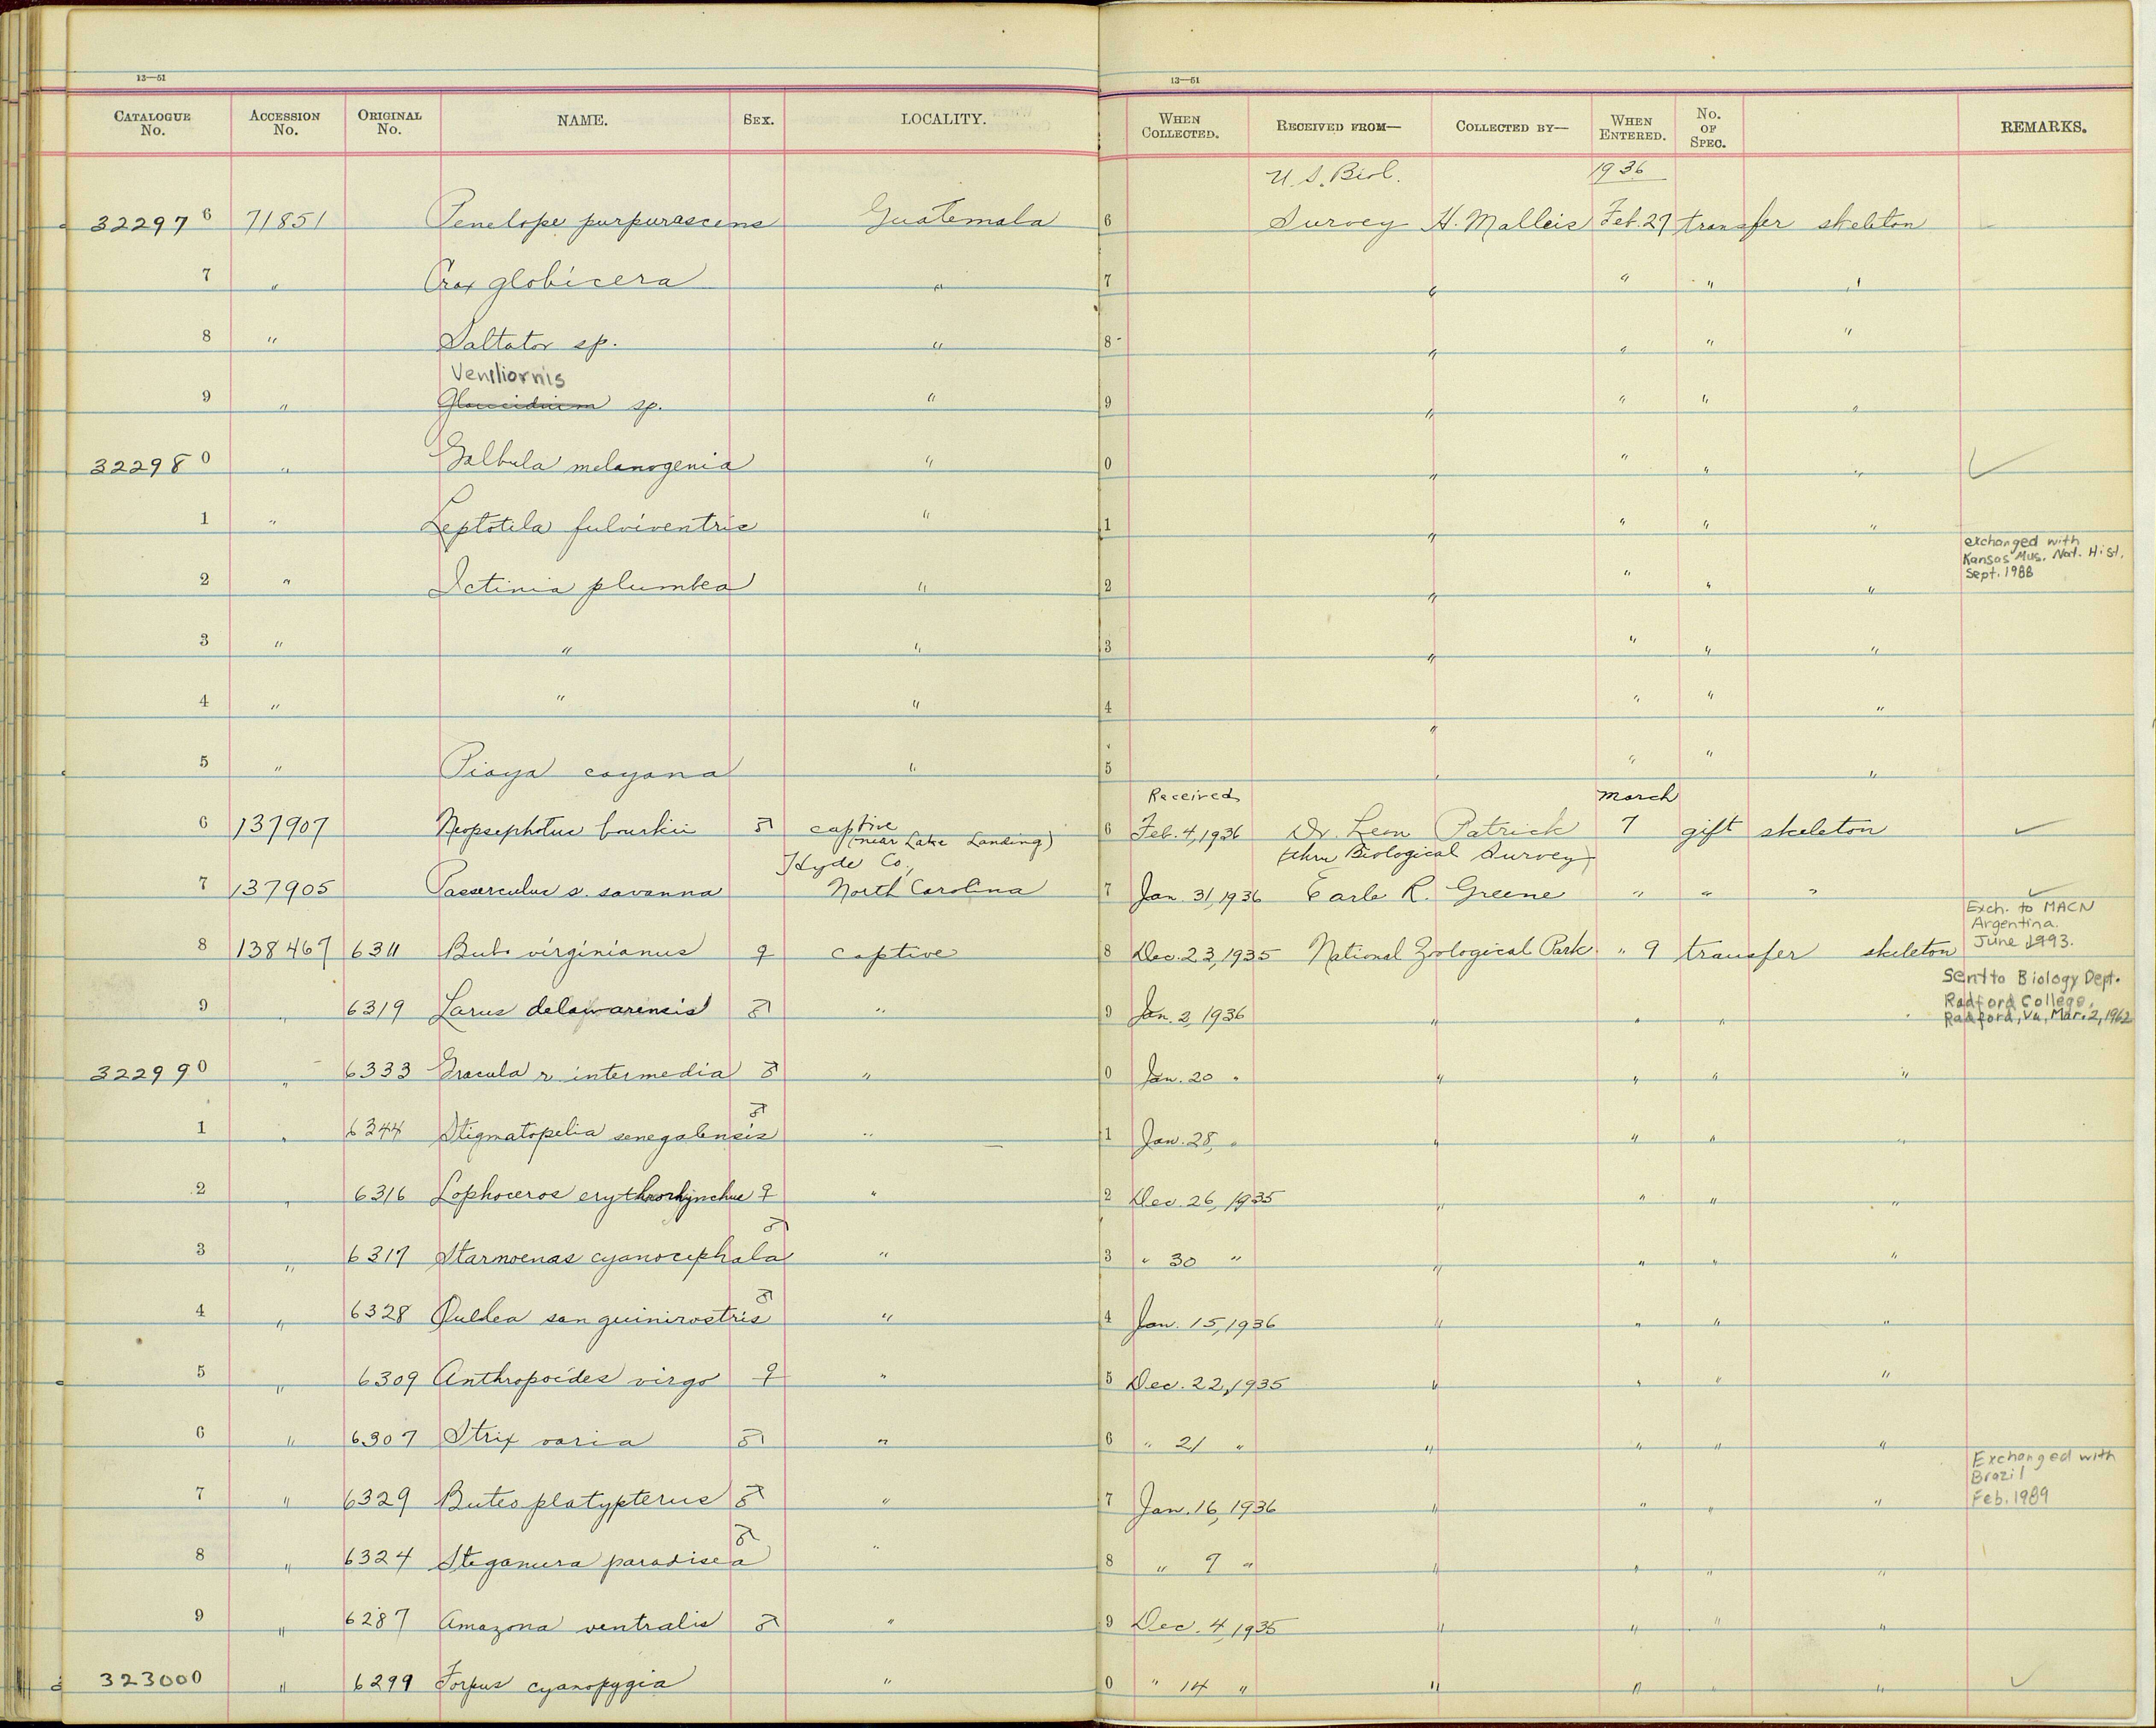 13—51 13—51
CATALOGUE No. ACCESSION No. ORIGINAL No. NAME. SEX. LOCALITY. WHEN COLLECTED. RECEIVED FROM— COLLECTED BY— WHEN ENTERED. No. OF SPEC. REMARKS.
U.S. Biol. 1936
322976 71851 Penelope purpurascens Guatemala 6 Survey H. Malleis Feb. 27 transfer skeleton
7 " Crax globicera " 7 " " " "
8 " Saltator sp. " 8 " " " "
Veniliornis
9 " Glaucidium sp. " 9 " " " "
322980 " Galbula melanogenia " 0 " " " " ✓
1 " Leptotila fulviventris " 1 " " " "
exchanged with
Kansas Mus. Nat. Hist.
Sept. 1988
2 " Ictinia plumbea " 2 " " " "
3 " " " 3 " " " "
4 " " " 4 " " " "
5 " Piaya cayana " 5 " " " "
Received March
6 137907 Neopsephotus bourkii ♂ captive 6 Feb. 4, 1936 Dr. Leon Patrick 7 gift skeleton ✓
(near Lake Landing) (thru Biological Survey)
Hyde Co.,
7 137905 Passerculus s. savanna North Carolina 7 Jan. 31, 1936 Earle R. Greene " " " ✓
Exch. to MACN
Argentina.
June 1993.
8 138467 6311 Bubo virginianus ♀ captive 8 Dec. 23, 1935 National Zoological Park " 9 transfer skeleton
Sent to Biology Dept.
Radford College,
Radford, Va, Mar. 2, 1962
9 " 6319 Larus delawarensis ♂ " 9 Jan. 2, 1936 " " " "
322990 " 6333 Gracula r. intermedia ♂ " 0 Jan. 20 " " " " "
1 " 6344 Stigmatopelia senegalensis ♂ " 1 Jan. 28, " " " " "
2 " 6316 Lophoceros erythrorhynchus ♀ " 2 Dec. 26, 1935 " " " "
3 " 6317 Starnoenas cyanocephala ♂ " 3 " 30 " " " " "
4 " 6328 Quelea sanguinirostris ♂ " 4 Jan. 15, 1936 " " " "
5 " 6309 Anthropoides virgo ♀ " 5 Dec. 22, 1935 " " " "
6 " 6307 Strix varia ♂ " 6 " 21 " " " " "
Exchanged with
Brazil
Feb. 1989
7 " 6329 Buteo platypterus ♂ " 7 Jan. 16, 1936 " " " "
8 " 6324 Steganura paradisea ♂ " 8 " 9 " " " " "
9 " 6287 Amazona ventralis ♂ " 9 Dec. 4, 1935 " " " "
323000 " 6299 Forpus cyanopygia " 0 " 14 " " " " " ✓